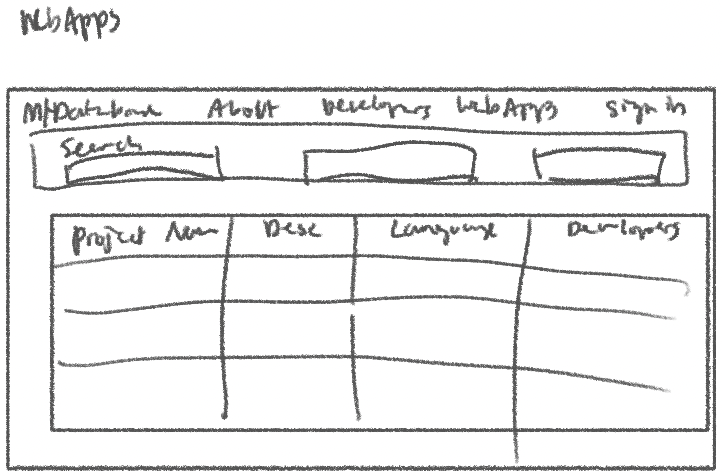 WebApps
MyDatabase About Developers WebApps Sign in
Search
Project Name Desc Language Developers